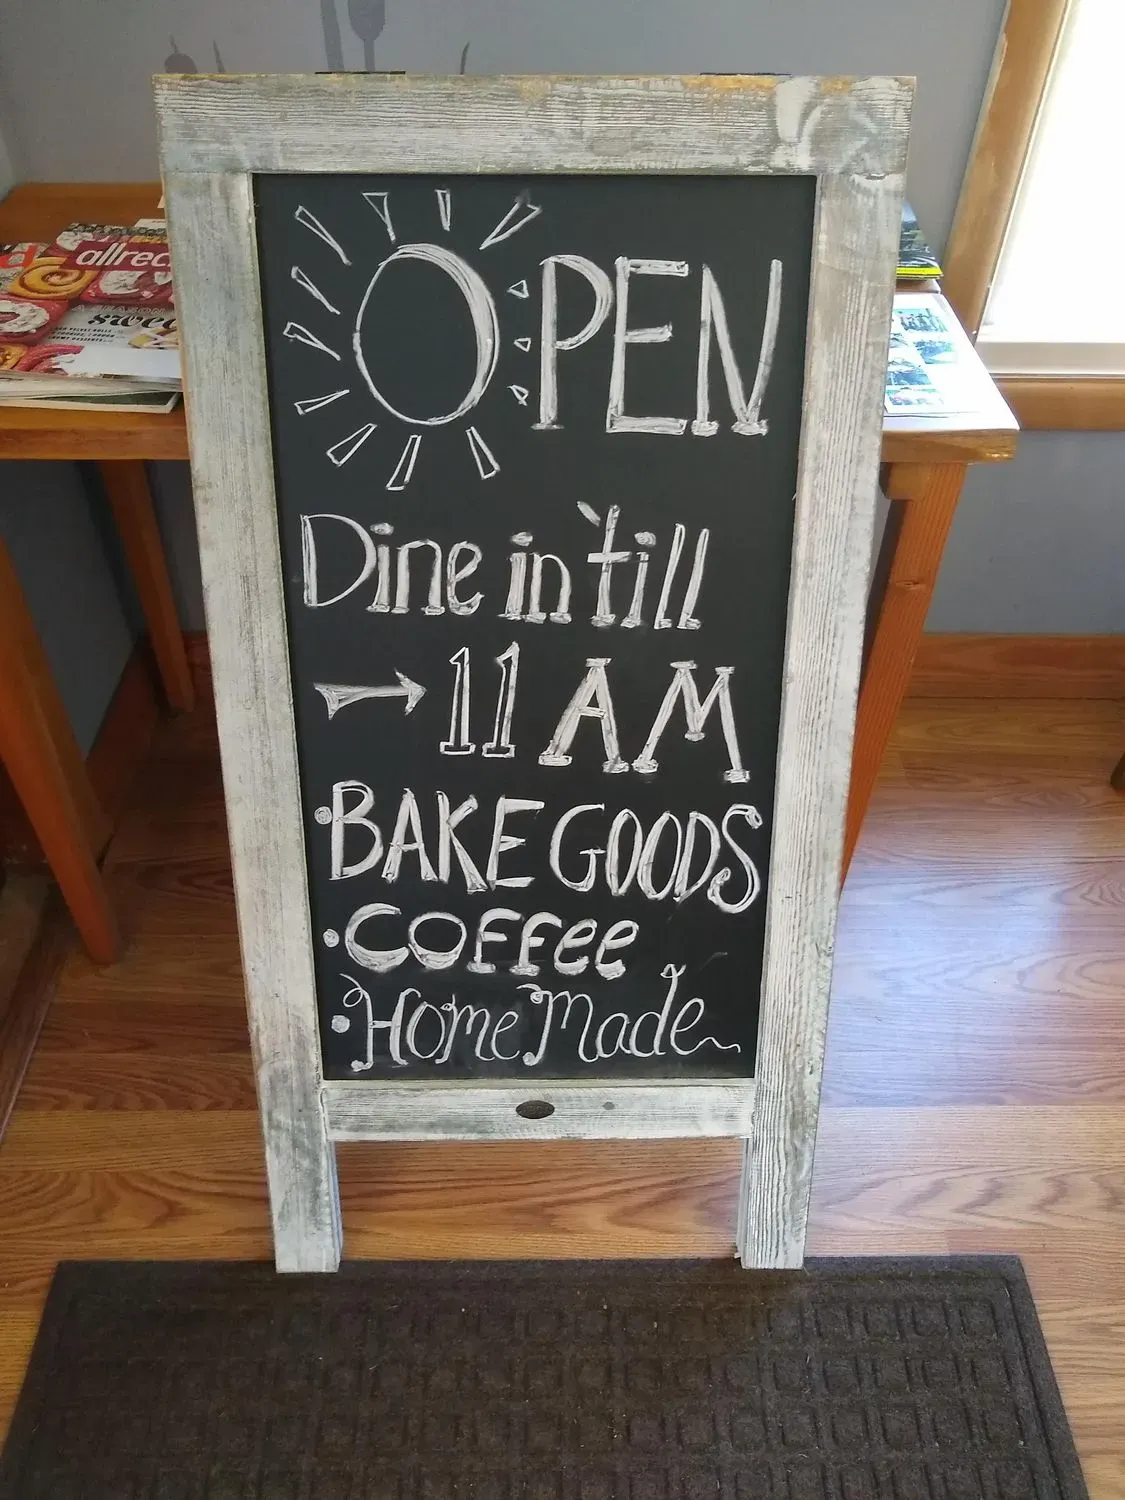 OPEN
Dine in 'till
→ 11 AM
• BAKE GOODS
• COFFee
• Home Made
allrec
swee